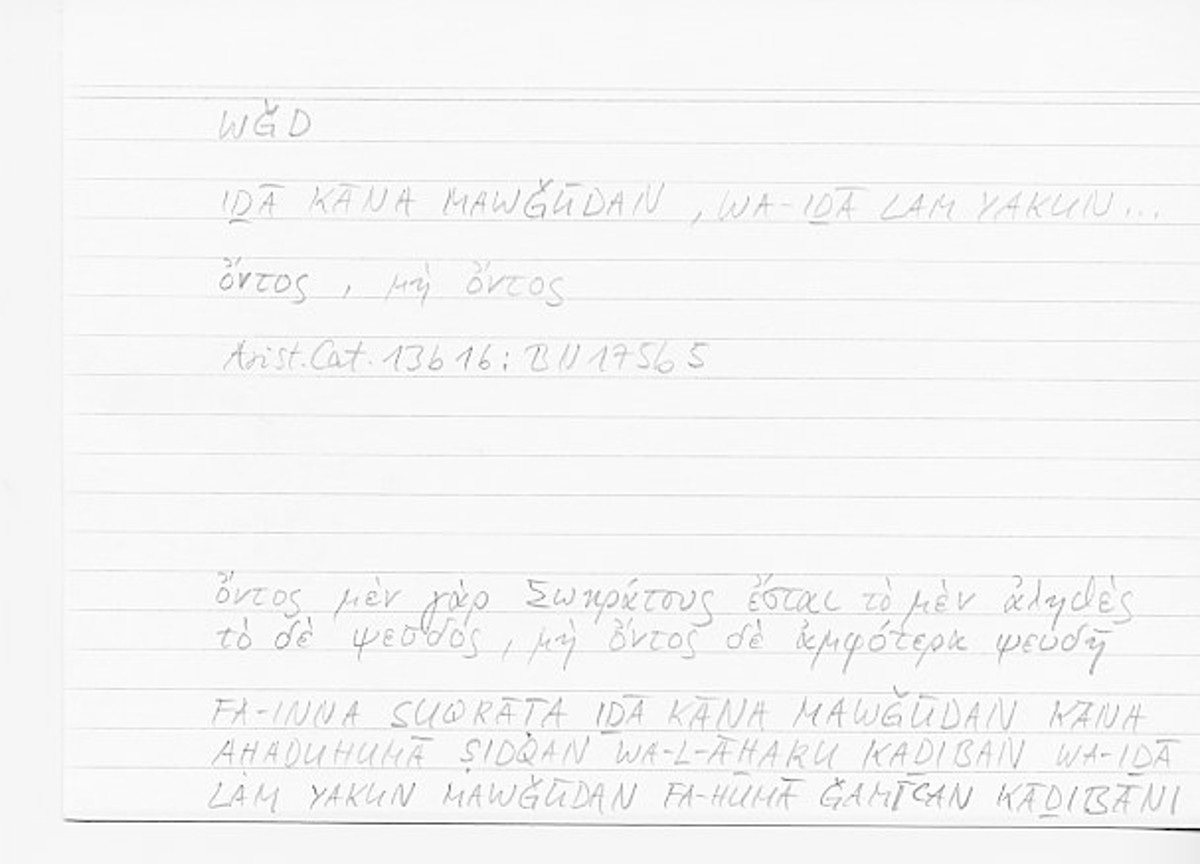 WǦD
IḎĀ KĀNA MAWǦŪDAN, WA-IḎĀ LAM YAKUN...
ὄντος, μὴ ὄντος
Arist. Cat. 13b16: BN 175b5
ὄντος μὲν γὰρ Σωκράτους ἔσται τὸ μὲν ἀληθὲς
τὸ δὲ ψεῦδος, μὴ ὄντος δὲ ἀμφότερα ψευδῆ
FA-INNA SUQRĀṬA IḎĀ KĀNA MAWǦŪDAN KĀNA
AḤADUHUMĀ ṢIDQAN WA-L-ĀḪARU KAḎIBAN WA-IḎĀ
LAM YAKUN MAWǦŪDAN FA-HUMĀ ǦAMĪʿAN KĀḎIBĀNI